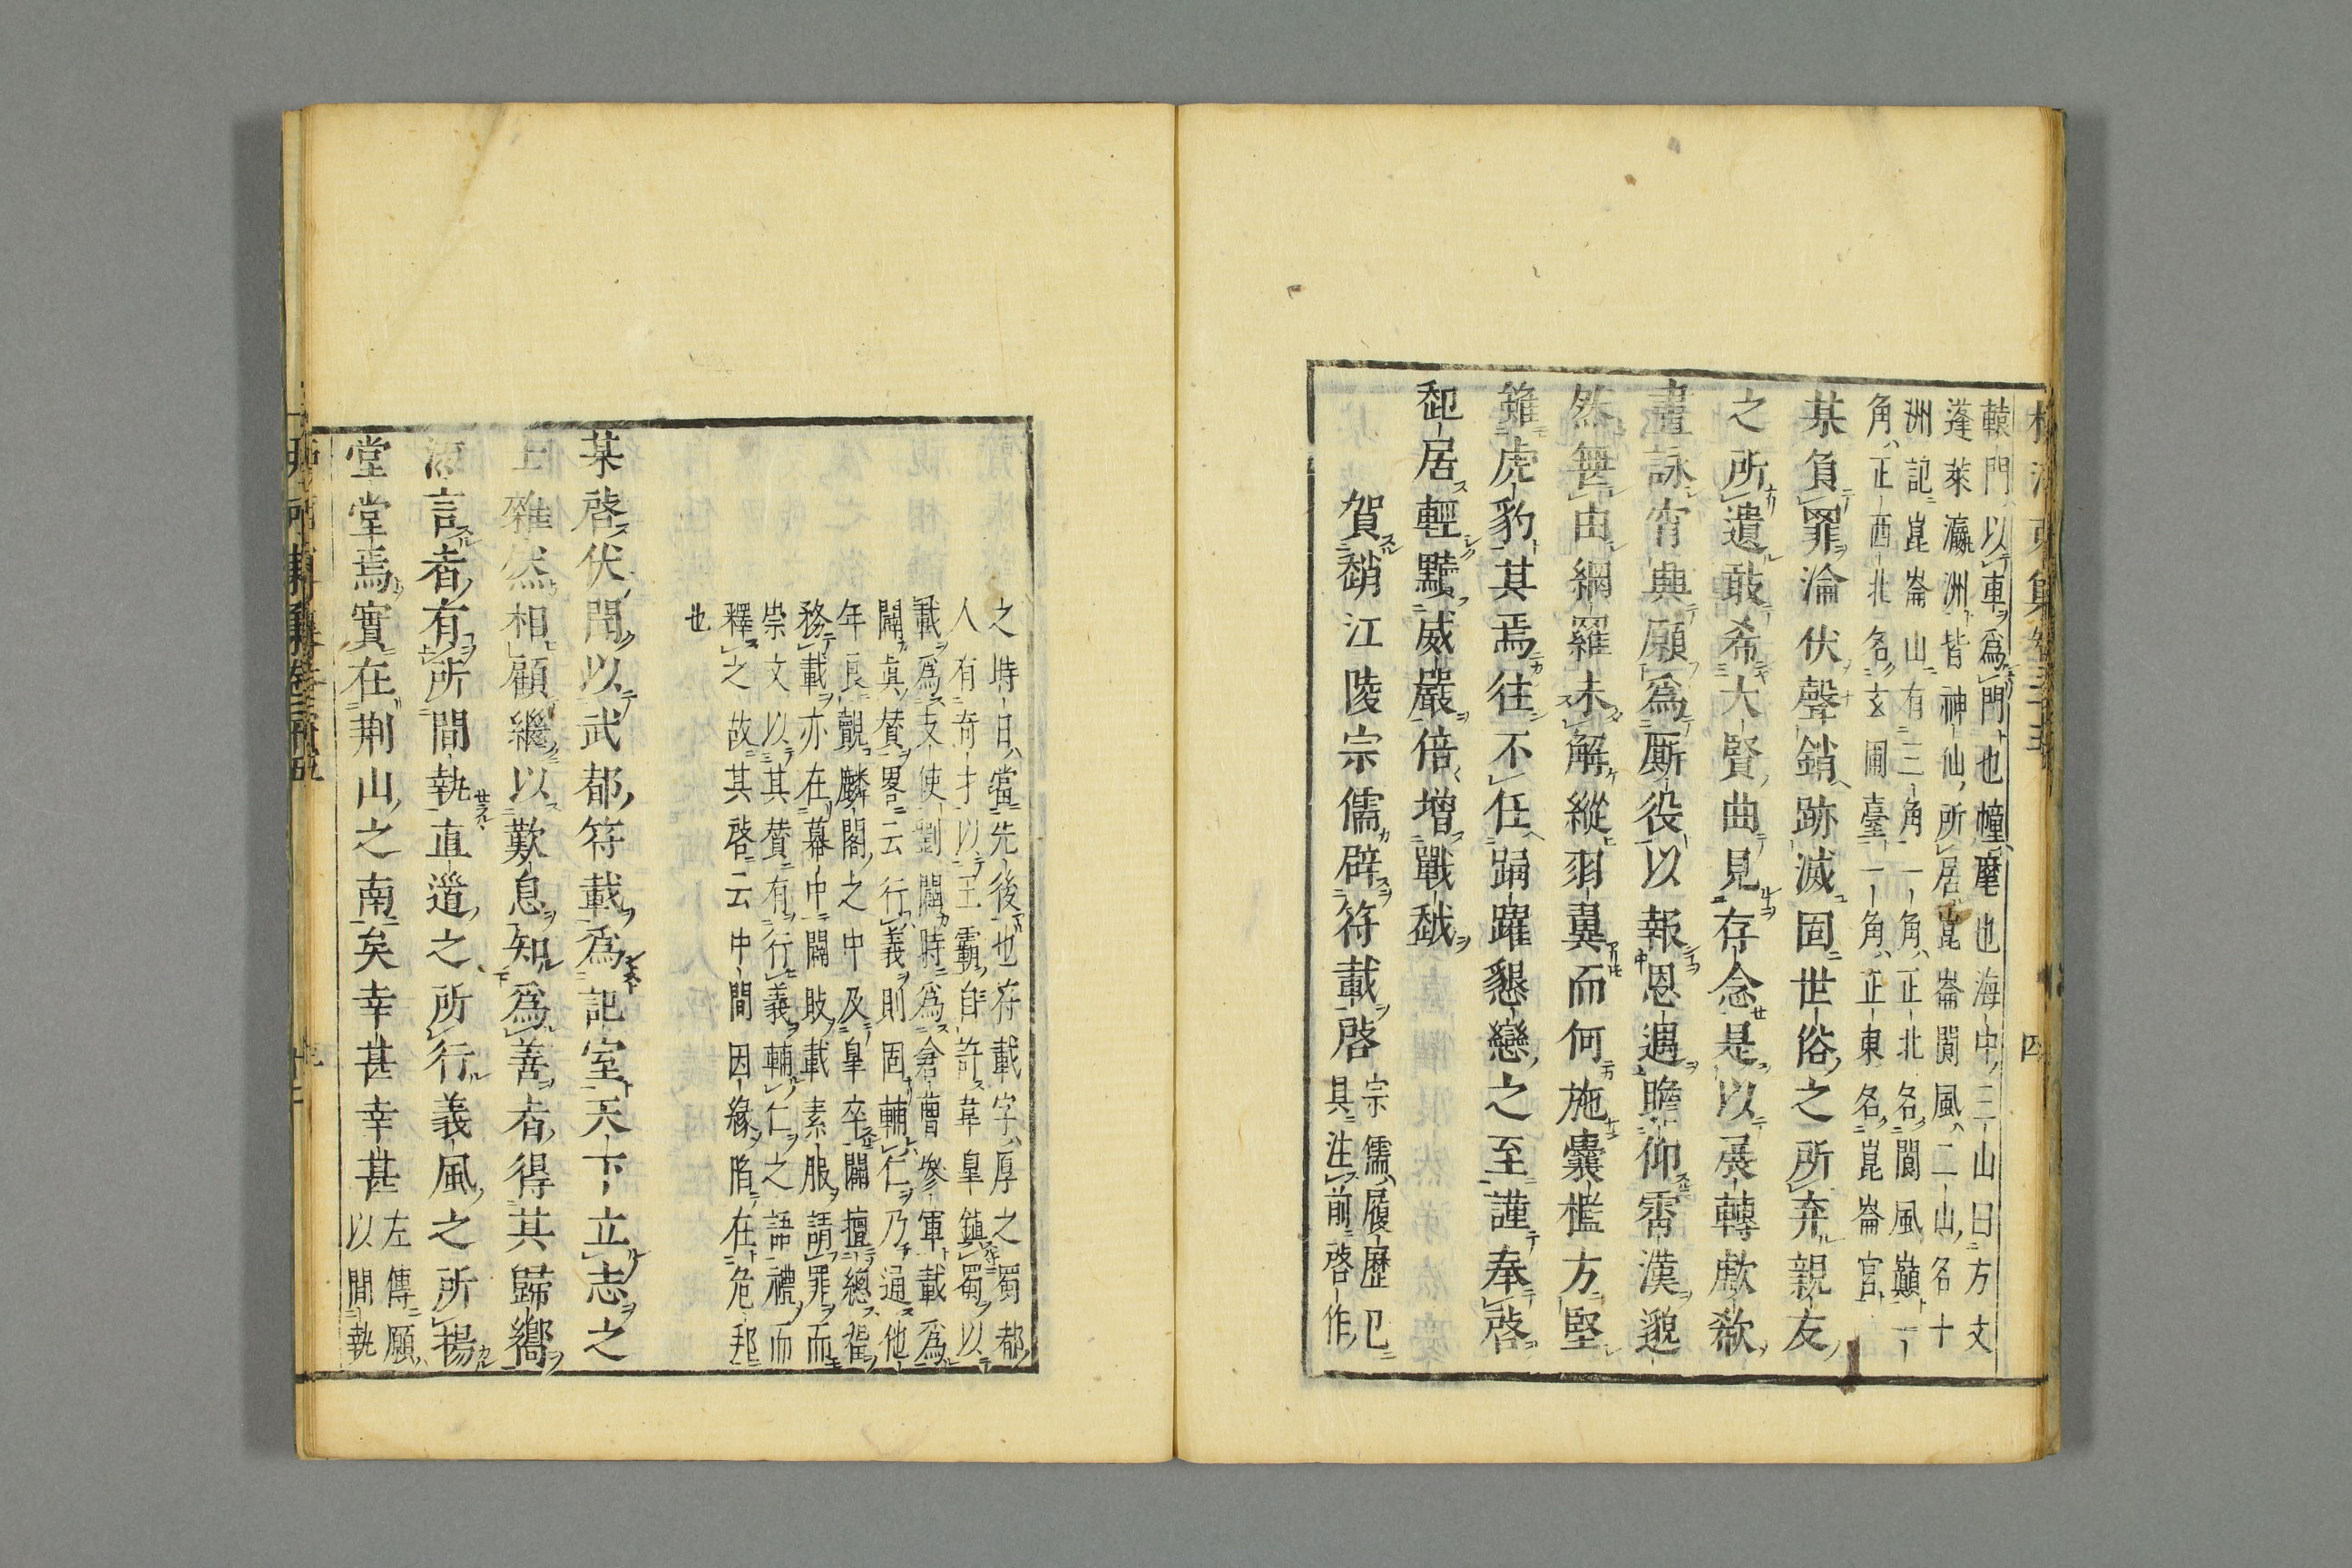 轅門以車爲門也幢麾也海中三山曰方丈
蓬萊瀛洲皆神仙所居崑崙閬風二山名十
洲記崑崙山有三角一角正北名閬風巔一
角正西北名玄圃臺一角正東名崑崙宮
某負罪淪伏聲銷跡滅固世俗之所弃親友
之所遺敢希大賢曲見存念是以展轉歔欷
晝詠宵興願爲厮役以報恩遇瞻仰霄漢邈
然無由網羅未解縱羽翼而何施囊檻方堅
雖虎豹其焉往不任踊躍懇戀之至謹奉啓
起居輕黷威嚴倍增戰越
賀趙江陵宗儒辟符載啓
宗儒履歷已
具注前啓作
之時日當先後也符載字厚之蜀都
人有奇才以王霸自許韋皐鎮蜀以
載爲支使劉闢時爲倉曹參軍載爲
闢眞賛畧云行義則固輔仁乃通他
年良覿麟閣之中及皐卒闢擅總留
務載亦在幕中闢敗載素服請罪而
崇文以其賛有行義輔仁之語禮而
釋之故其啓云中間因緣陷在危邦
也
某啓伏聞以武都符載爲記室天下立志之
士雜然相顧繼以歎息知爲善者得其歸嚮
流言者有所間執直道之所行義風之所揚
堂堂焉實在荆山之南矣幸甚幸甚
左傳願
以間執